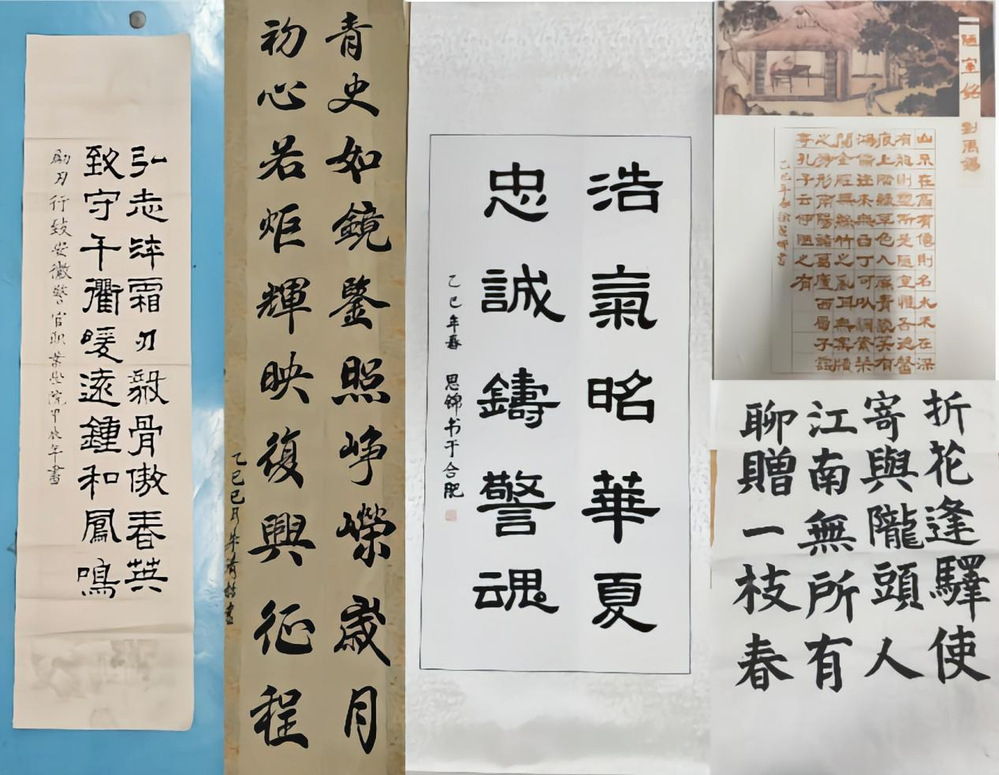 弘志淬霜刃毅骨傲春英
致守千衢暖遠鍾和鳳鳴
勵刃行致安徽警官职業學院甲辰年書
青史如鏡鑒照崢嶸歲月
初心若炬輝映復興征程
乙巳巳月朱青書
浩氣昭華夏
忠誠鑄警魂
乙巳年春 思錦书于合肥
陋室銘 劉禹錫
山不在高有僊則名水不在深
有龍則靈斯是陋室惟吾德馨
痕上階緑草色入簾青談笑有
鴻儒往來無白丁可以調素琴
閱金經無絲竹之亂耳無案牘
之勞形南陽諸葛廬西蜀子雲
亭孔子云何陋之有
乙巳年春徐書
折花逢驛使
寄與隴頭人
江南無所有
聊贈一枝春